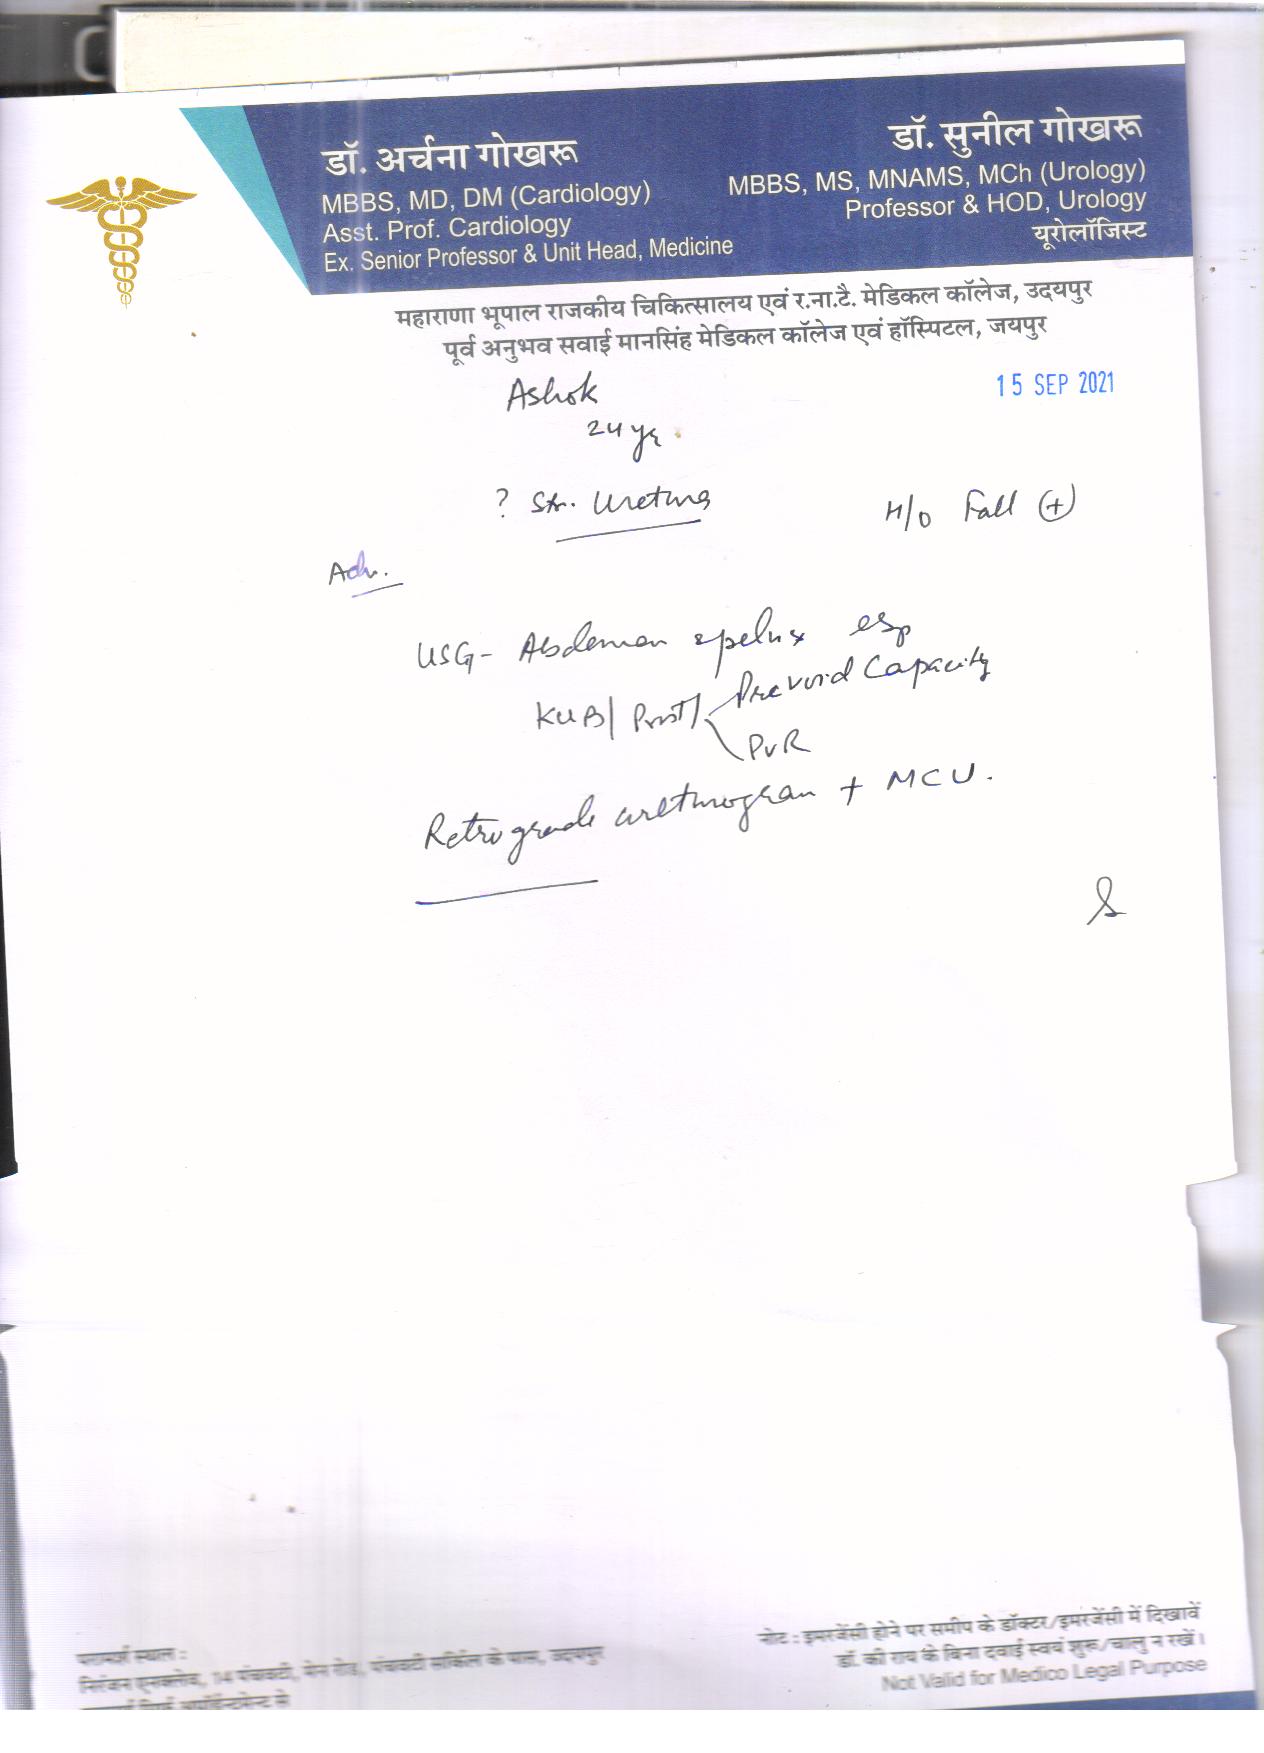 डॉ. अर्चना गोखरू
MBBS, MD, DM (Cardiology)
Asst. Prof. Cardiology
Ex. Senior Professor & Unit Head, Medicine
डॉ. सुनील गोखरू
MBBS, MS, MNAMS, MCh (Urology)
Professor & HOD, Urology
यूरोलॉजिस्ट
महाराणा भूपाल राजकीय चिकित्सालय एवं र.ना.टै. मेडिकल कॉलेज, उदयपुर
पूर्व अनुभव सवाई मानसिंह मेडिकल कॉलेज एवं हॉस्पिटल, जयपुर
15 SEP 2021
Ashok
24 yr.
? Str. Urethra
H/O Fall (+)
Adv.
USG- Abdomen & pelvis esp
KUB/ Prost/ Prevoid Capacity
PVR
Retrograde urethrogram + MCU.
परामर्श स्थल :
14 पंचवटी, मेन रोड, पंचवटी सर्किल के पास, उदयपुर
नोट : इमरजेंसी होने पर समीप के डॉक्टर/इमरजेंसी में दिखावें
डॉ. की राय के बिना दवाई स्वयं शुरू/चालु न रखें।
Not Valid for Medico Legal Purpose